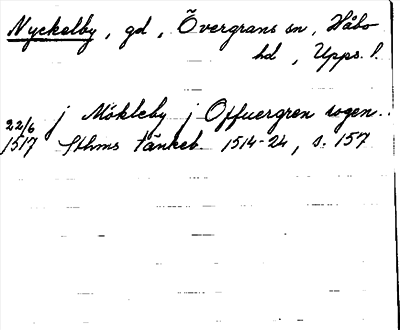 Nyckelby, gd, Övergrans sn, Håbo
hd, Upps. l.
22/6 j Mökleby j Offuergren sogen..
1517 Sthms tänkeb. 1514-24, s. 157